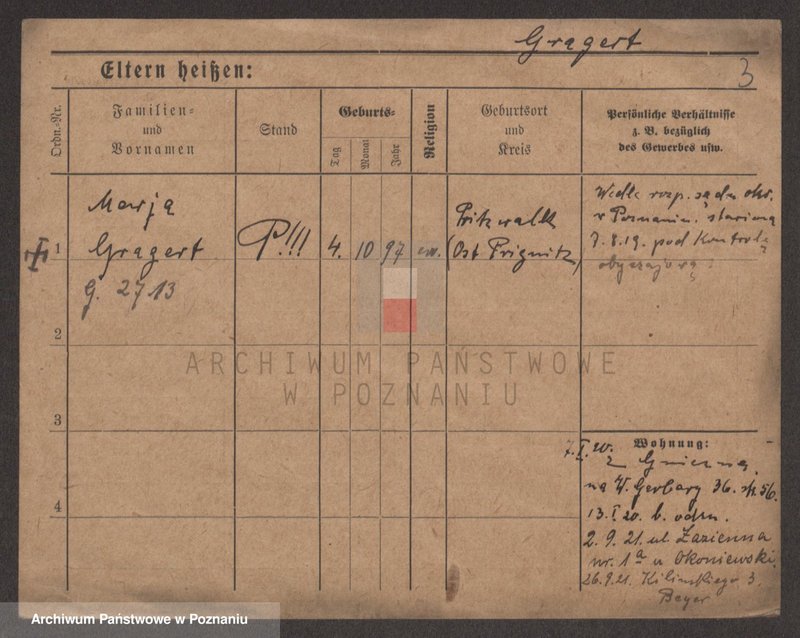 Gragert
3
Eltern heißen:
Ordn.-Nr.
Familien-
und
Vornamen
Stand
Geburts-
Tag
Monat
Jahr
Religion
Geburtsort
und
Kreis
Persönliche Verhältnisse
z. B. bezüglich
des Gewerbes usw.
1
Marja
Gragert
G. 2713
P!!!
4. 10 97 ew.
Pritzwalk
(Ost Prignitz)
Wedle rozp. sądu okr.
w Poznaniu stawiona
7.8.19. pod Kontrolę
obyczajową.
2
3
4
Wohnung:
7.I.20.
z Gniezna
na W. Gerbary 36. 56.
13.I 20. b. odm.
2.9.21. ul Łazienna
nr. 1a u Okoniewski
26.9.21. Kilinskiego 3.
Beyer
ARCHIWUM PAŃSTWOWE
W POZNANIU
Archiwum Państwowe w Poznaniu